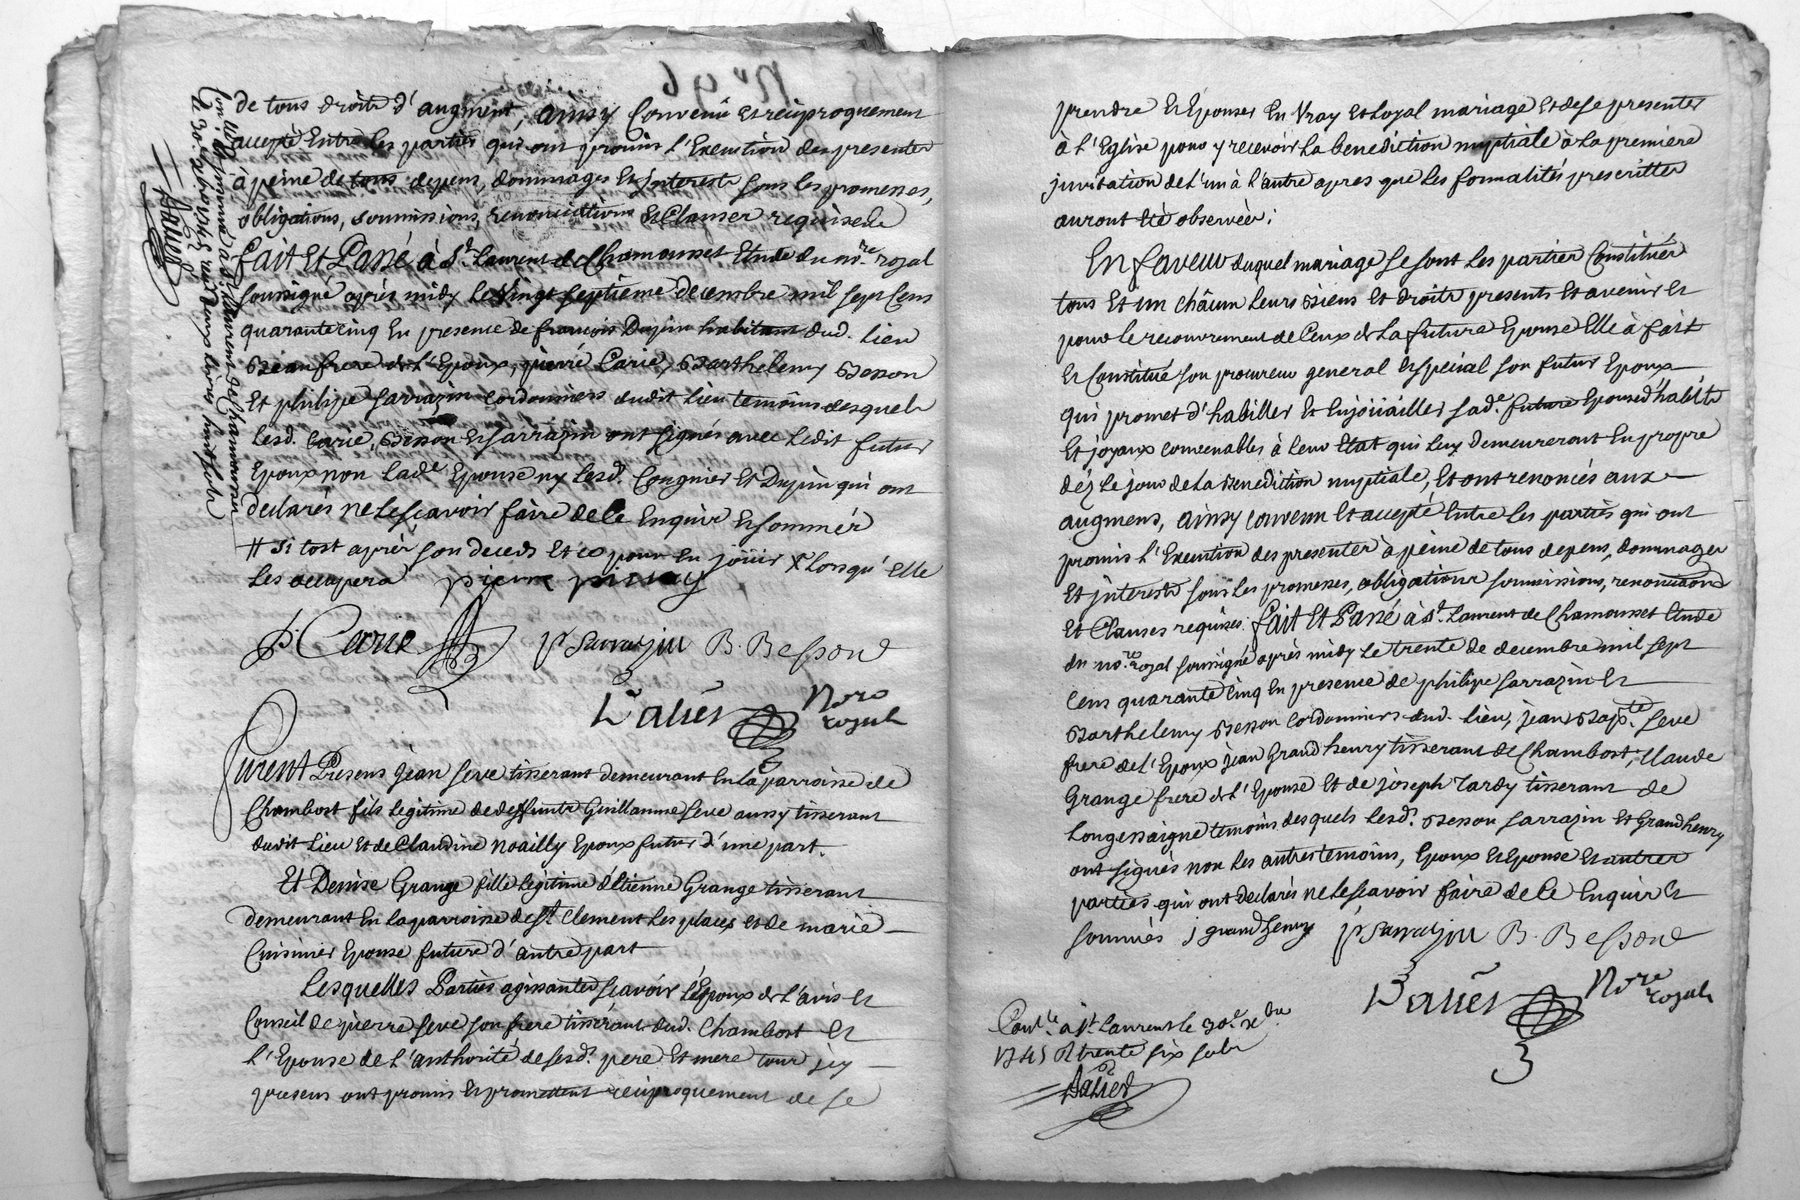 de tous droits d'augment, ainsy Convenû et reciproquement
accepté Entre les parties qui ont promis l'Execution des presentes
à peine de tous depens, dommages Et interests sous les promesses,
obligations, soumissions, renonciations Et Clauses requises &
fait Et Passé à St. Laurent de Chamousset Etude du nore. royal
soussigné après midy le Vingt septieme decembre mil sept Cens
quarante cinq En presence de francois Dupin habitant dud. lieu
Beaufrere de l'Epoux, pierre Carie, Barthelemy Besson
Et philipe sarrazin cordonniers dudit lieu temoins desquels
lesd. Carie, Besson Et sarrazin ont signés avec ledit futur
Epoux non lade Epouse ny lesd. Coognier Et Dupin qui ont
declarés ne le scavoir faire de ce Enquis Et sommés
# si tost après son deceds Et pour en joüir X lorsqu'elle
les occupera pierre
P Carie P Sarrazin B. Besson
Daliés Nore
royal
furent Presens jean seve tisserant demeurant En la parroisse de
Chambost fils legitime de deffunts Guillaume seve aussy tisserant
dudit lieu Et de Claudine Noailly Epoux futur d'une part.
Et Denise Grange fille legitime d'Etienne Grange tisserant
demeurant En la parroisse de St. Clement les places et de marie
Cuisinier Epouse future d'autre part
Lesquelles Parties agissantes scavoir l'Epoux de l'avis Et
Conseil de pierre seve son frere tisserant dud. Chambost Et
l'Epouse de l'authorité de sesd. pere Et mere tous jcy
presens ont promis Et promettent reciproquement de se
Conlé. et insinué à St. Laurent de Chamousset
le 30. xbre 1745
Daliés
prendre Et Epouser En Vray Et loyal mariage Et de se presenter
à l'Eglise pour y recevoir la benediction nuptiale à la premiere
jnvitation de l'un à l'autre apres que les formalités prescrittes
auront été observées;
En faveur duquel mariage se sont les parties Constitués
tous Et un châcun leurs biens Et droits presents Et avenir Et
pour le recouvrement de Ceux de la future Epouse Elle à fait
Et Constitué son procureur general Et special son futur Epoux
qui promet d'habiller Et Enjoüailler sade. future Epouse d'habits
Et joyaux convenables à leur Etat qui luy demeureront En propre
dés le jour de la Benediction nuptiale, Et ont renoncés aux
augmens, ainsy convenu Et accepté Entre les parties qui ont
promis l'Execution des presentes à peine de tous depens, dommages
Et jnterests sous les promesses, obligations soumissions, renonciaons
Et Clauses requises. fait Et Passé à St. Laurent de Chamousset Etude
du nore. royal soussigné après midy le trente de decembre mil sept
Cens quarante Cinq En presence de philipe sarrazin Et
Barthelemy Besson Cordonniers dud. lieu, jean Bapte. seve
frere de l'Epoux jean Grandhenry tisserant de Chambost, Claude
Grange frere de l'Epouse Et de joseph Tardy tisserant de
Longessaigne temoins desquels lesd. Besson sarrazin Et Grandhenry
ont signés non les autres temoins, Epoux Et Epouse Et autres
parties qui ont declarés ne le scavoir faire de ce Enquis Et
sommés j grandhenry P Sarrazin B. Besson
Daliés Nore
royal
Conlé. à St. Laurent le 30e. xbre
1745 R trente six sols
Daliés